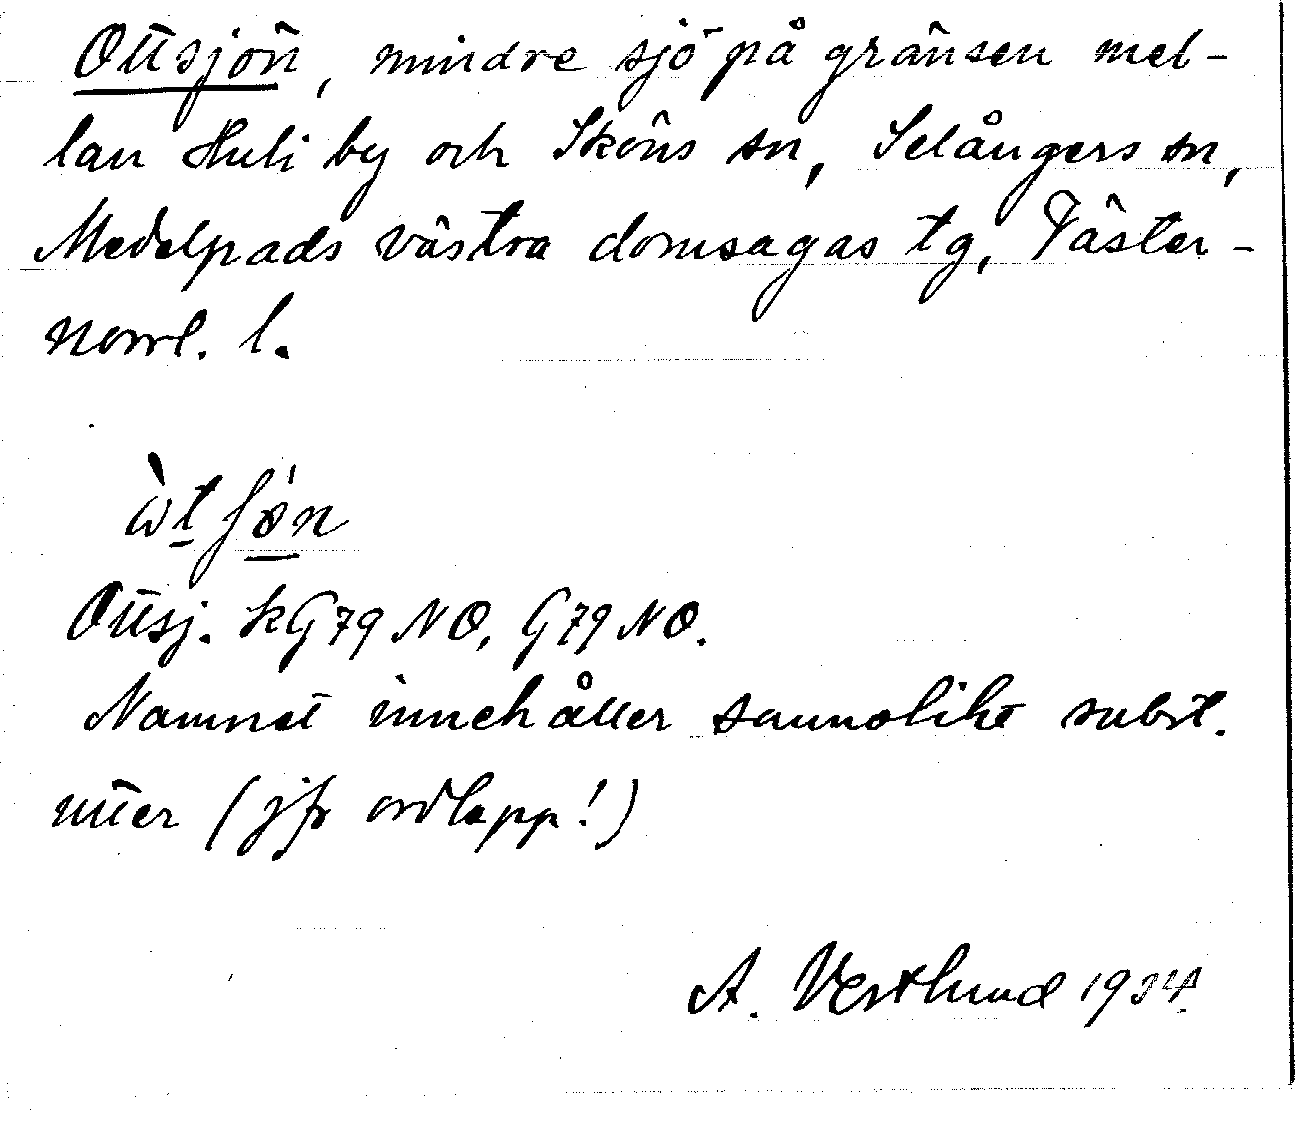 Ottsjön, mindre sjö på gränsen mel-
lan Huli by och Sköns sn, Selångers sn,
Medelpads västra domsagas tg, Väster-
norrl. l.
ὼt ʃó̤n
Ottsj. kG79NO, G79NO.
Namnet innehåller sannolikt subst.
utter (jfr ordlapp!)
A. Vestlund 1924.